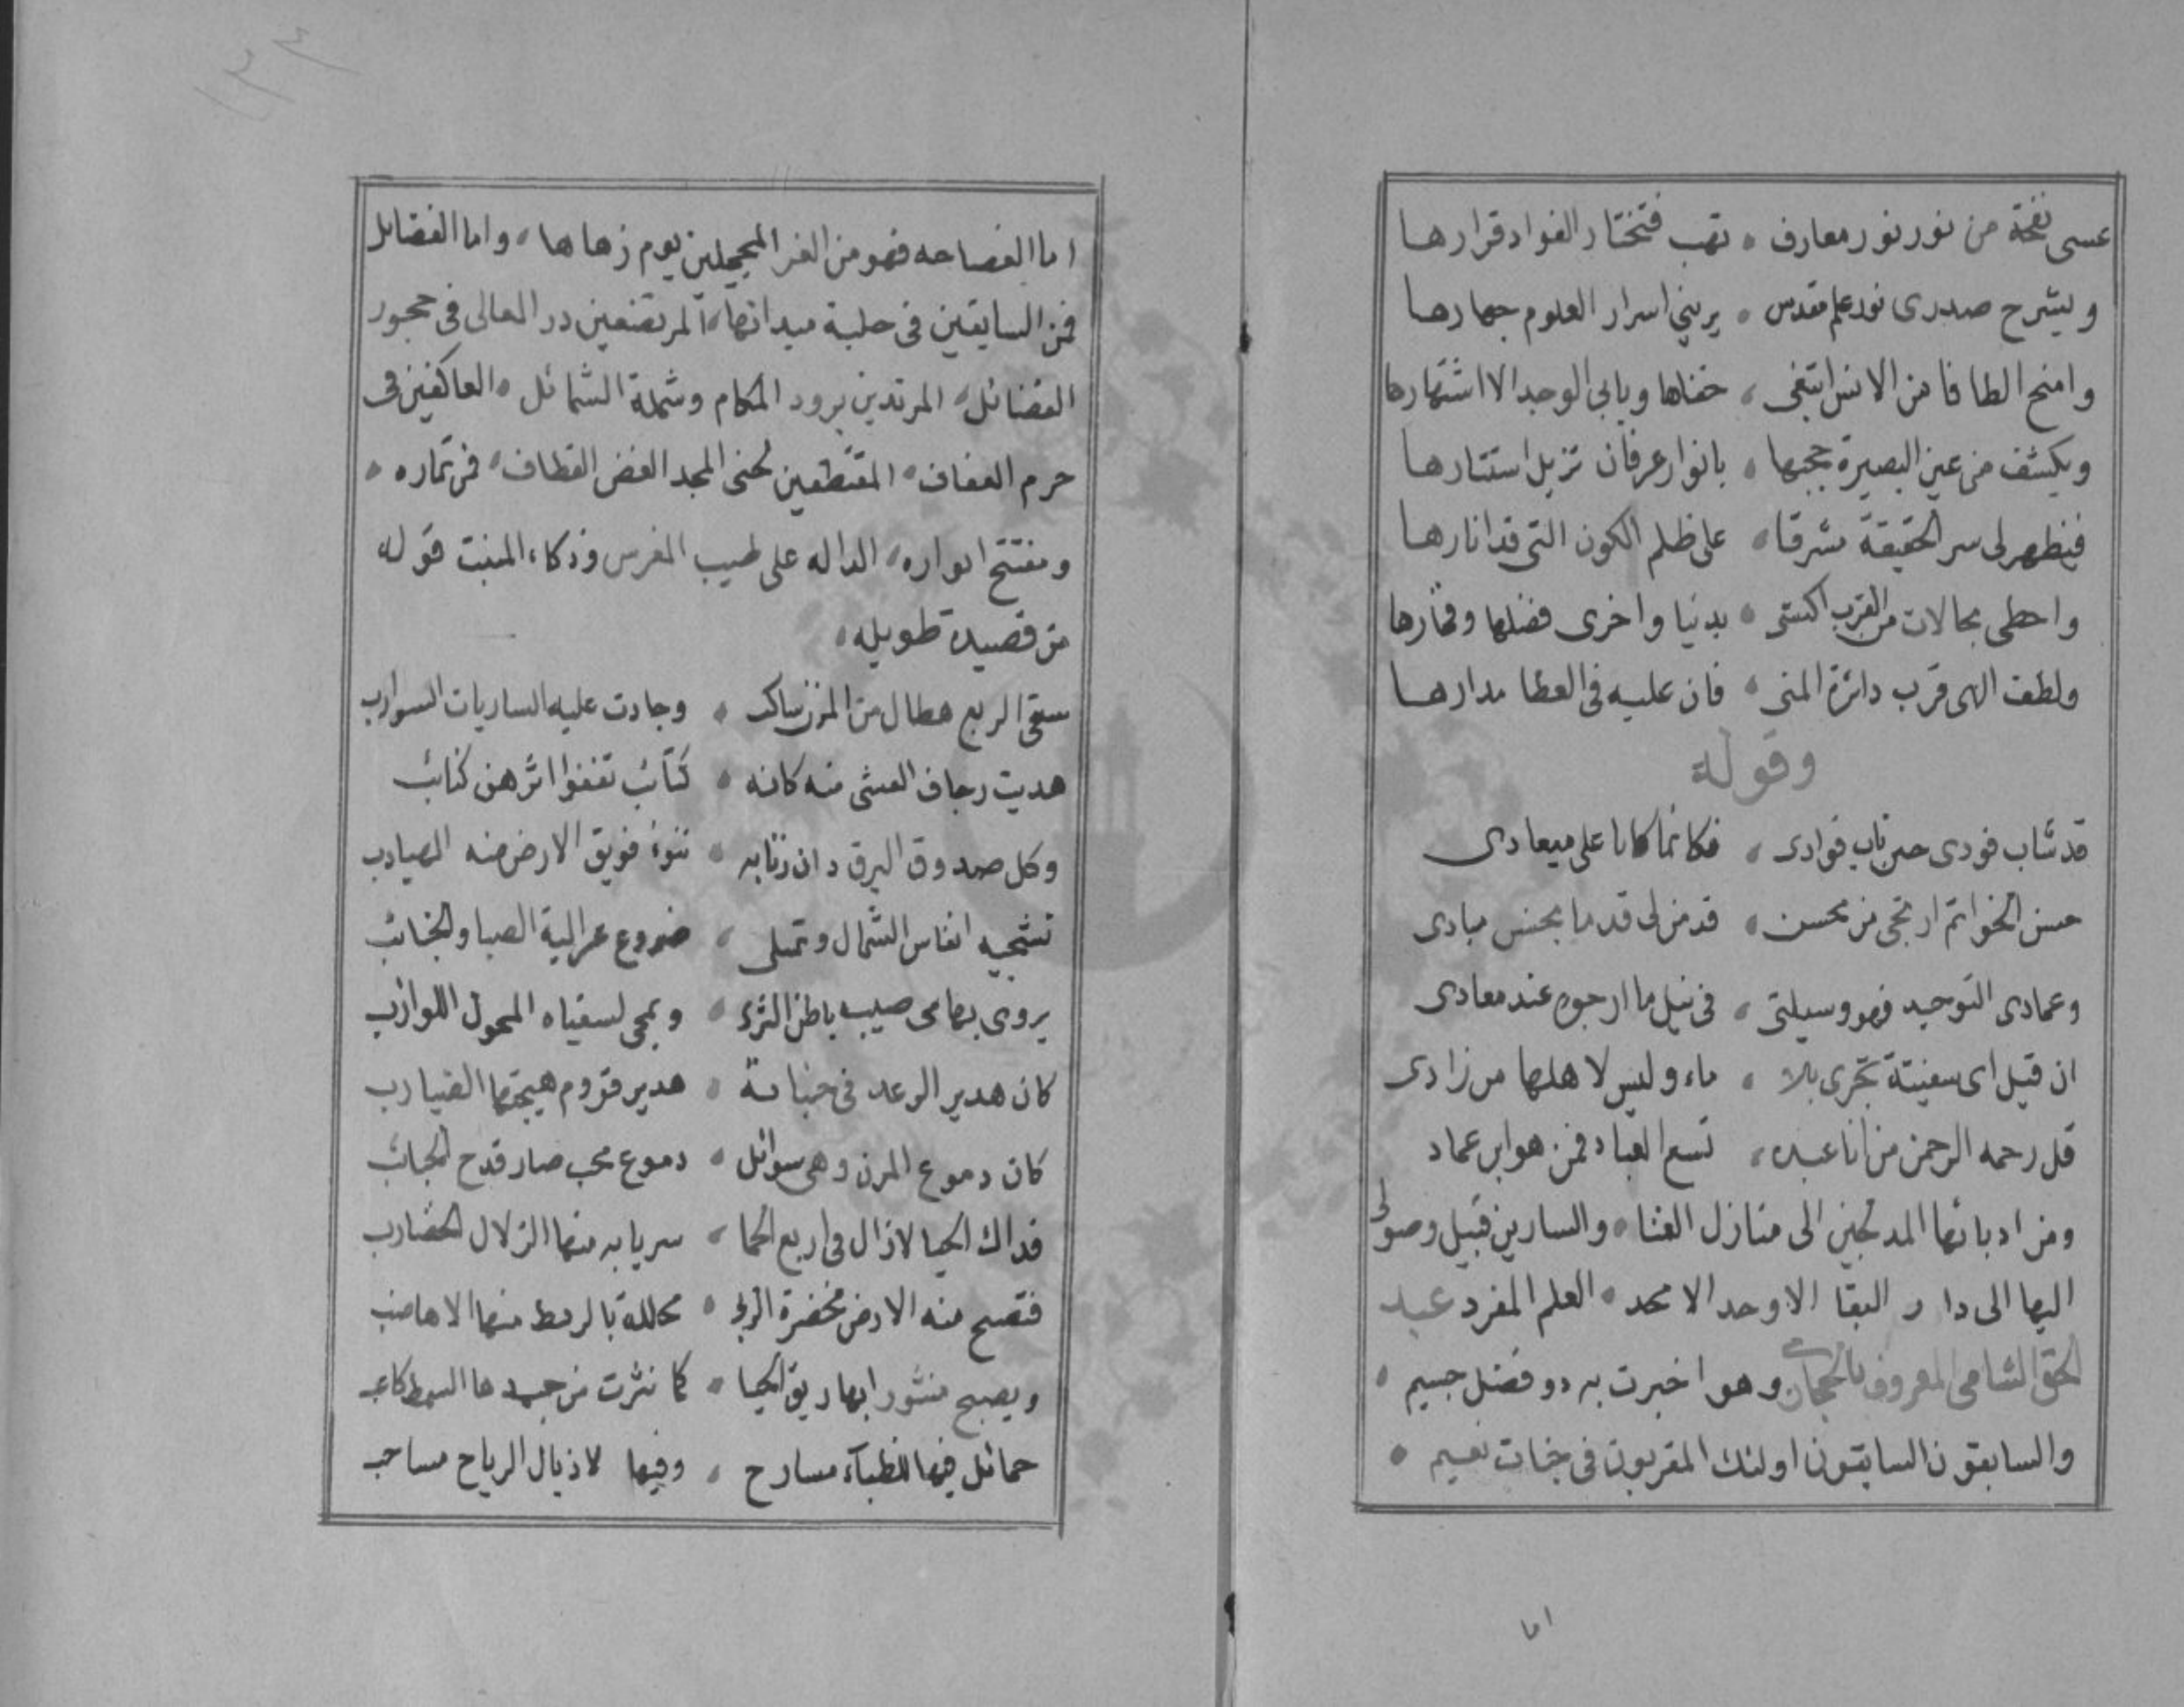 عسى نفحة من نور نور معارف ، تهب فتختار الفواد قرارها
ويشرح صدرى نور علم مقدس ، يريني اسرار العلوم جهارها
وامنح الطافا من الانس ابتغى ، خفاها ويابى الوجد الا اشتهارها
ويكشف من عين البصيرة حجبها ، بانوار عرفان تزيل استتارها
فيظهر لى سر الحقيقة مشرقا ، على ظلم الكون التى قد انارها
واحظى بحالات من القرب اكتسى ، بدنيا واخرى فضلها وفخارها
ولطف الهى قرب دائرة المنى ، فان عليه فى العطا مدارها
وقوله
قد شاب فودى حين ناب فوادى ، فكانما كانا على ميعادى
حسن الخواتم ارتجى من محسن ، قد من لى قدما بحسن مبادى
وعمادى التوحيد فهو وسيلتى ، فى نيل ما ارجوه عند معادى
ان قيل اى سفينة تجرى بلا ، ماء وليس لاهلها من زادى
قل رحمه الرحمن من انا عبده ، تسع العباد فمن هو ابن عماد
ومن ادبائها المدلجين الى منازل الفنا ، والسارين قبيل وصولى
اليها الى دار البقا الاوحد الامجد ، العلم المفرد عبد
الحق الشامى المعروف بالحجازى وهو اخبرت به ذو فضل جسيم ،
والسابقون السابقون اولئك المقربون فى جنات نعيم ،
اما
اما الفصاحه فهو من الغر المحجلين يوم زهاها ، واما الفضايل
فمن السابقين فى حلبة ميدانها ، المرتضعين در المعالى فى حجور
الفضائل ، المرتدين برود المكام وشملة الشمائل ، العاكفين فى
حرم العفاف ، المقتطفين لجنى المجد الغض القطاف ، فمن ثماره ،
ومفتتح انواره ، الداله على طيب المغرس وذكاء المنبت قوله
من قصيده طويله ،
سقى الربع هطال من المزن ساكب ، وجادت عليه الساريات السوارب
هديت رجاف العشى منه كانه ، كتائب تقفوا اثرهن كتائب
وكل صدوق البرق دان ربابه ، تنوء فويق الارض منه الهيادب
تشجيه انفاس الشمال وتمتلى ، ضروع عزاليه الصبا والجنائب
يروى بهامى صيبه باطن الثرى ، ويمحى لسقياه المحول اللوازب
كان هدير الرعد فى جنباته ، هدير قروم هيجتها الضيارب
كان دموع المزن وهى سوائل ، دموع محب صار قدح الحبائب
فداك الحيا لازال فى اربع الحما ، سريا به منها الزلال الخضارب
فتصبح منه الارض مخضرة الربى ، مجللة بالرمط منها الاهاضب
ويصبح منثورا بها ريق الحيا ، كما نثرت من جيدها السمط كاعب
خمائل فيها للظباء مسارح ، وفيها لاذيال الرياح مساحب